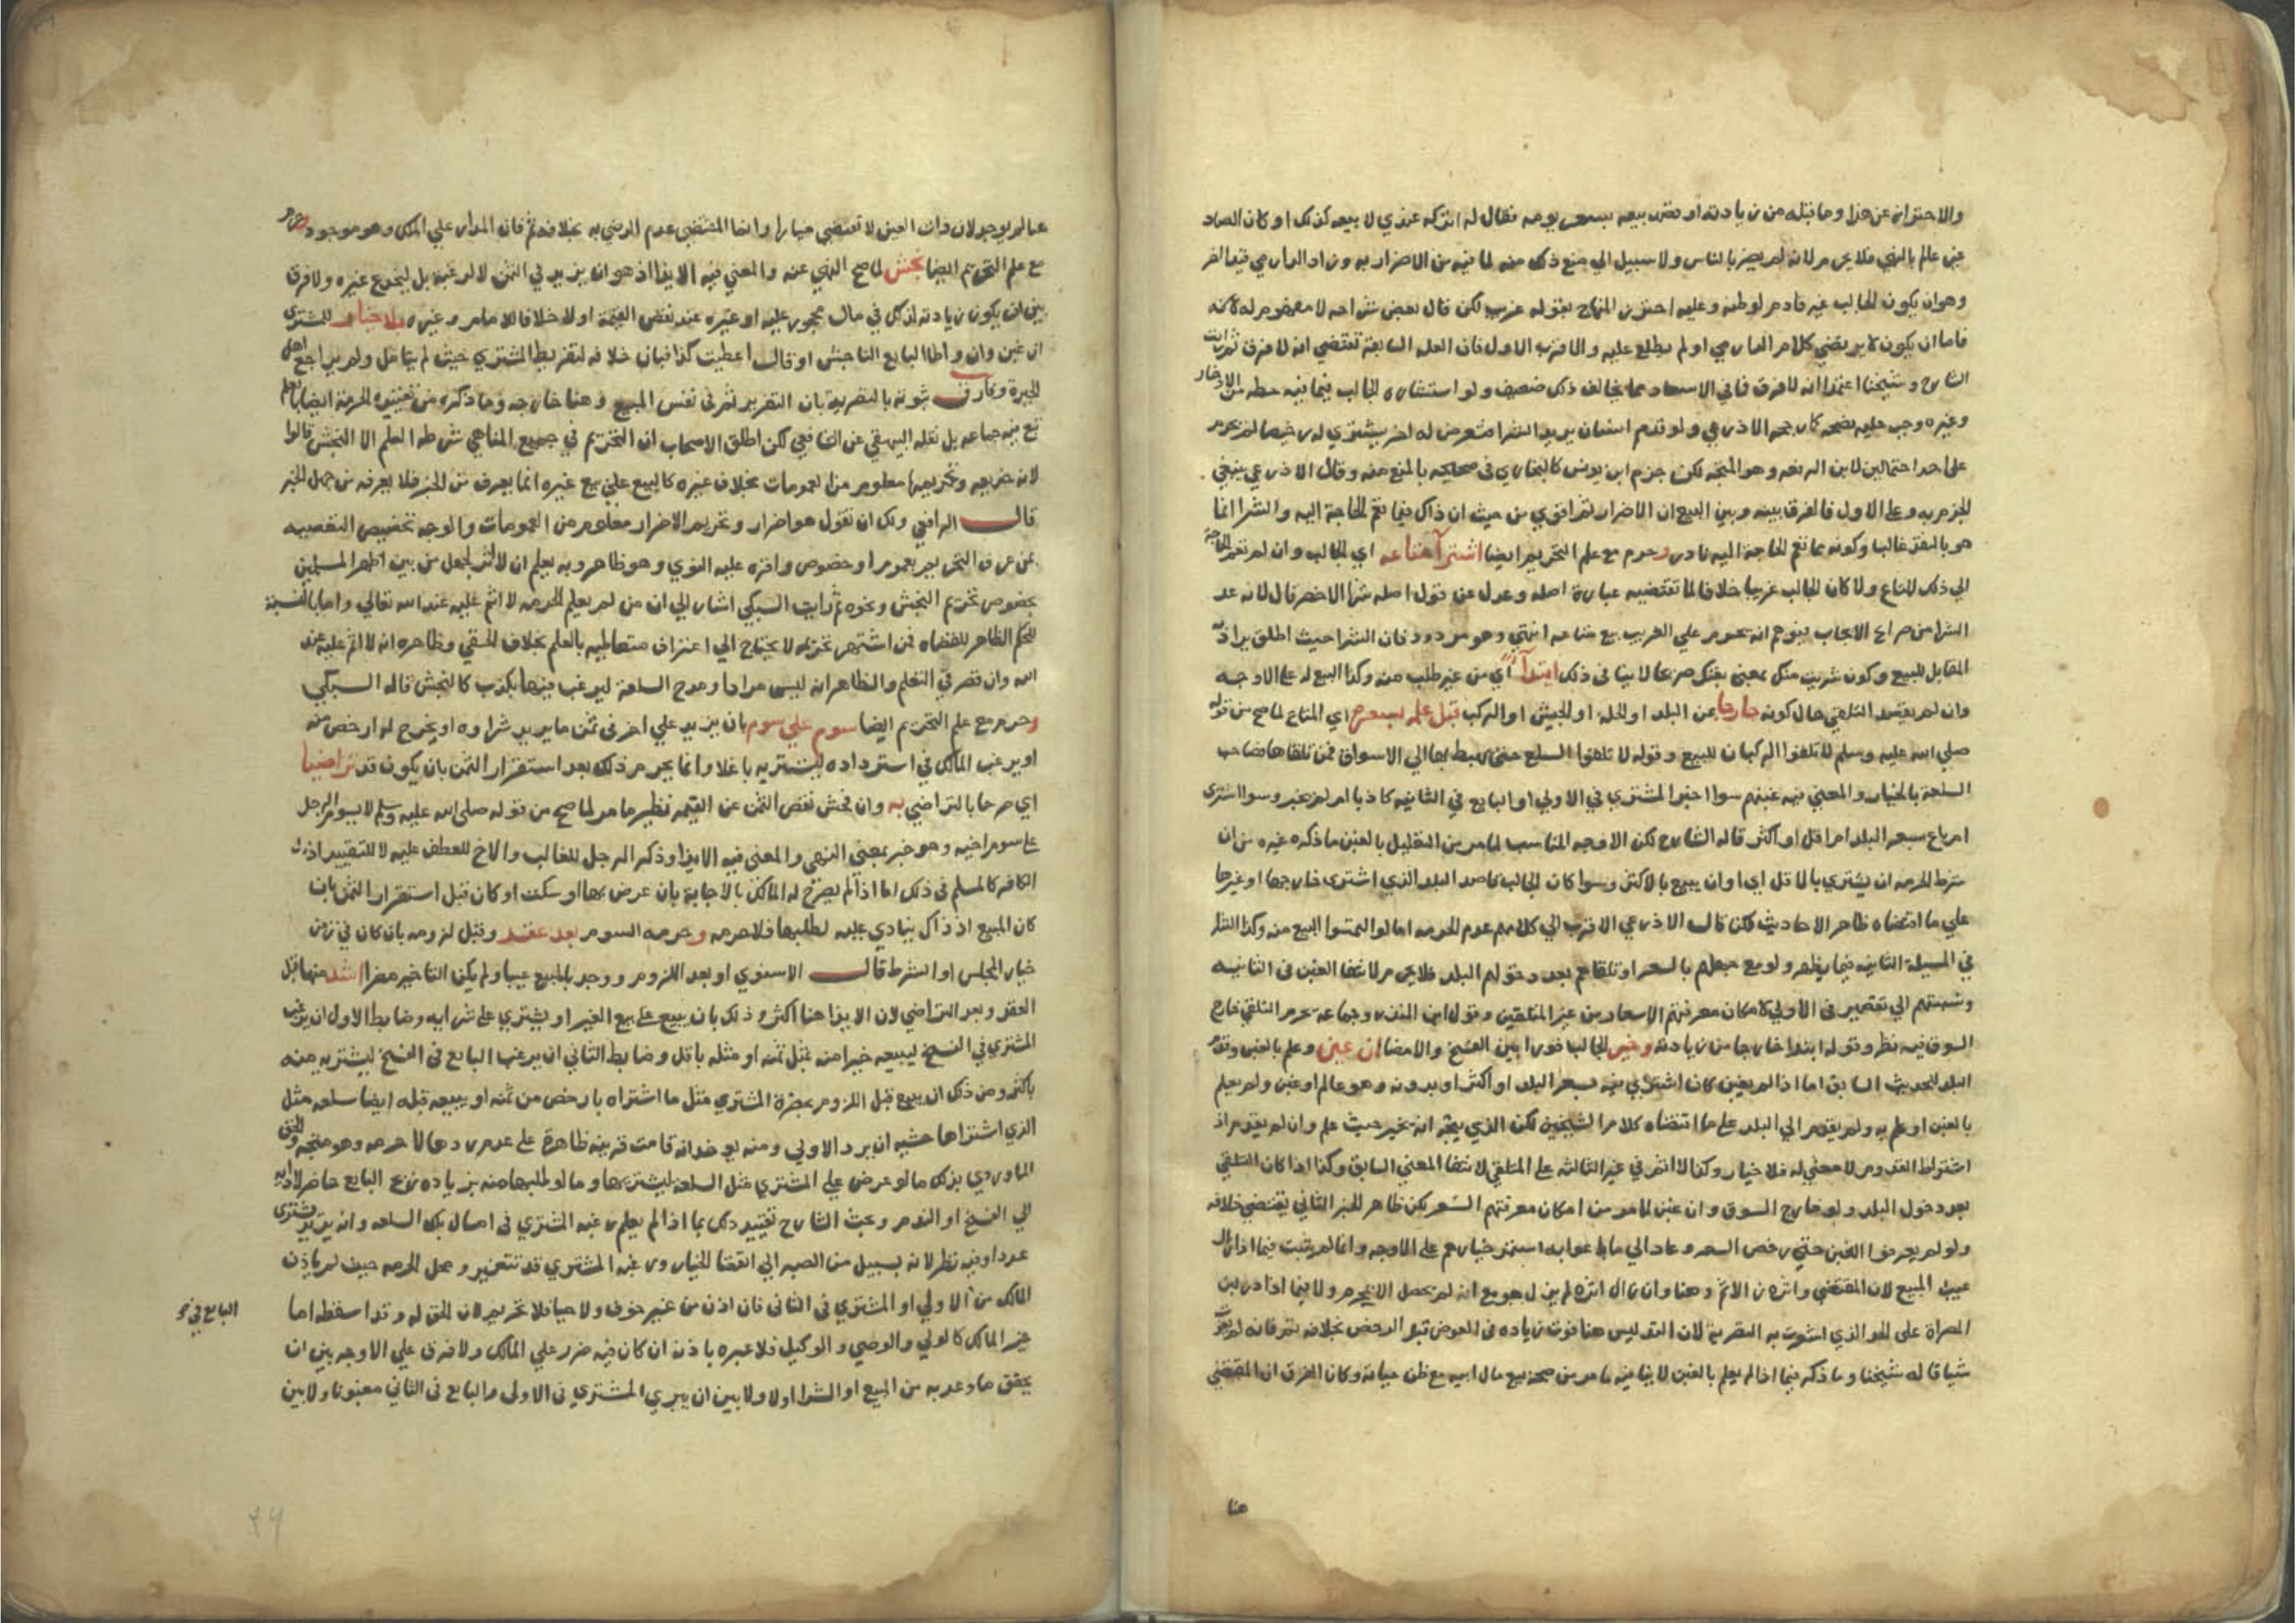 والاحتراز عن هذا وما قبله من زيادته او بيعه بسعر يومه فقال له اتركه عندي لا بيعه كذلك او كان
غير عالم بالنهي فلا يحرم لانه لم يضر بالناس ولا سبيل الي منع ذلك منه لما فيه من الاضرار به وزاد الفارسي قيدا اخر
وهو ان يكون الجالب غير قادم لوطنه وعليه احترز المنهاج بقوله غريب لكن قال بعض شراحه لا مفهوم له لانه
فاما ان يكون لا يرتضي كلام الفارسي او لم يطلع عليه والاقرب الاول فان العلة السابقة تقتضي انه لا فرق ثم رايت
الشارح وشيخنا اعتمدا انه لا فرق فما في الاسعاد مما يخالف ذلك ضعيف ولو استشاره الجالب فيما فيه حظه من الادخار
وغيره وجب عليه نصحه كما رجحه الاذرعي ولو قدم انسان يريد الشرا فتعرض له اخر يشتري له رخيصا لم يحرم
علي احد احتمالين لابن الرفعه وهو المتجه لكن جزم ابن يونس كالبخاري في صحيحه بالمنع منه وقال الاذرعي ينبغي
الجزم به وعلي الاول فالفرق بينه وبين البيع ان الاضرار ثم اقوي من حيث ان ذاك فيما تعم الحاجة اليه والشرا انما
هو بالنقد غالبا وكونه مما تعم الحاجة اليه نادر وحرم مع علم التحريم ايضا اشترا متاعه اي الجالب وان لم تعم الحاجة
الي ذلك المتاع ولا كان الجالب غريبا خلافا لما تقتضيه عبارة اصله وعدل عن قول اصله شرا الاخصر قال لانه عد
الشرا من صرايح الايجاب فيوهم انه يحرم علي الغريب بيع متاعه انتهي وهو مردود فان الشرا حيث اطلق يراد به
المقابل للبيع وكون شريت منك بمعني بعتك صريحا لا ينافي ذلك ابتدآ اي من غير طلب منه وكذا البيع له علي الاوجه
وان لم يقصد التلقي حال كونه خارجا عن البلد او الحلة او الجيش او الركب قبل علم بسعر اي المتاع لما صح من قوله
صلي الله عليه وسلم لا تلقوا الركبان للبيع وقوله لا تلقوا السلع حتي يهبط بها الي الاسواق فمن تلقاها فصاحب
السلعة بالخيار والمعني فيه غبنهم سوا اخبر المشتري في الاولي او البايع في الثانيه كاذبا ام لم يخبر وسوا اشتري
ام باع بسعر البلد ام اقل او اكثر قاله الشارح لكن الاوجه المناسب لما مر من التعليل بالغبن ما ذكره غيره من ان
شرط الحرمه ان يشتري بالاقل اي او ان يبيع بالاكثر وسوا كان الجالب قاصد البلد الذي اشتري خارجها او غيرها
علي ما اقتضاه ظاهر الاحاديث لكن قال الاذرعي الاقرب الي كلامهم عدم الحرمه اما لو التمسوا البيع منه وكذا الشرا
في المسيلة الثانيه فيما يظهر ولو مع جهلهم بالسعر او تلقاهم بعد دخولهم البلد فلا يحرم لانتفا الغبن في الثانيه
ونسبتهم الي تقصير في الاولي لامكان معرفتهم الاسعار من غير المتلقين وقول ابن المنذر وجماعه يحرم التلقي خارج
السوق فيه نظر وقوله ابتدا خارجا من زيادته وخير الجالب فورا بين الفسخ والامضا ان غبن وعلم بالغبن وقدم
البلد للحديث السابق اما اذا لم يغبن كان اشتري منه بسعر البلد او اكثر او بدونه وهو عالم او غبن ولم يعلم
بالغبن او علم به ولم يقدم الي البلد علي ما اقتضاه كلام الشيخين لكن الذي يتجه انه يخير حيث علم وان لم يقدم اذ
اشتراط القدوم لا معني له فلا خيار وكذا لا اثم في غير الثالثه علي المتلقي لانتفا المعني السابق وكذا اذا كان التلقي
بعد دخول البلد ولو خارج السوق وان غبن لما مر من امكان معرفتهم السعر لكن ظاهر الخبر الثاني يقتضي خلافه
ولو لم يعرفوا الغبن حتي رخص السعر وعاد الي ما باعوا به استمر خيارهم علي الاوجه وانما لم يثبت فيما اذا زال
عيب المبيع لان المقتضي واثره زال ثم وهنا وان زال اثره لم يزل هو مع انه لم يحصل الا بمحرم ولا فيما اذا در لبن
المصراة علي الحد الذي اشعرت به التصرية لان التدليس هنا فوت زياده في العوض قبل الرخص بخلافه ثم فانه لم يفوت
شيا قاله شيخنا وما ذكر فيما اذا لم يعلم بالغبن لا ينافيه ما مر من صحة بيع مال ابيه مع ظن حياته وكان الفرق ان المقتضي
هنا
هنا لم يوجد لان ذات الغبن لا تقتضي خيارا وانما المقتضي عدم الرضي به بخلافه ثم فان المدار علي الملك وهو موجود وحرم
مع علم التحريم ايضا نجش لما صح النهي عنه والمعني فيه الايذا اذ هو ان يزيد في الثمن لا لرغبة بل ليخدع غيره ولا فرق
بين ان يكون زيادته لذلك في مال محجور عليه او غيره عند نقص القيمة او لا خلافا للامام وغيره ولا خيار للمشتري
ان غبن وان واطا البايع الناجش او قال اعطيت كذا فبان خلافه لتفريط المشتري حيث لم يتامل ولم يراجع اهل
الخبرة وفارق ثبوته بالتصرية بان التغرير ثم في نفس المبيع وهنا خارجه وما ذكره من تقييده الحرمة ايضا بالعلم
تبع فيه جماعه بل نقله البيهقي عن الشافعي لكن اطلق الاصحاب ان التحريم في جميع المناهي شرطه العلم الا النجش قالوا
لانه خديعه وتحريمها معلوم من العمومات بخلاف غيره كالبيع علي بيع غيره انما يعرف من الخبر فلا يعرفه من جهل الخبر
قال الرافعي ولك ان تقول هو اضرار وتحريم الاضرار معلوم من العمومات والوجه تخصيص التعصيه
بمن عرف التحريم بعموم او خصوص واقره عليه النووي وهو ظاهر وبه يعلم ان لا اثر لجهل من بين اظهر المسلمين
بخصوص تحريم النجش ونحوه ثم رايت السبكي اشار الي ان من لم يعلم الحرمه لا اثم عليه عند الله تعالي واما بالنسبة
للحكم الظاهر للقضاه فمن اشتهر تحريمه لا يحتاج الي اعتراف متعاطيه بالعلم بخلاف الخفي وظاهره انه لا اثم عليه عند
الله وان قصر في التعلم والظاهر انه ليس مرادا ومدح السلعة ليرغب فيها بكذب كالنجش قاله السبكي
وحرم مع علم التحريم ايضا سوم علي سوم بان يزيد علي اخر في ثمن ما يريد شراوه او يخرج له ارخص منه
او يرغب المالك في استرداده ليشتريه باغلا وانما يحرم ذلك بعد استقرار الثمن بان يكون قد تراضيا
اي صرحا بالتراضي به وان فحش نقص الثمن عن القيمه نظير ما مر لما صح من قوله صلي الله عليه وسلم لا يسوم الرجل
علي سوم اخيه وهو خبر بمعني النهي والمعني فيه الايذا وذكر الرجل للغالب والاخ للعطف عليه لا للتقييد اذ
الكافر كالمسلم في ذلك اما اذا لم يصرح له المالك بالاجابة بان عرض بها او سكت او كان قبل استقرار الثمن بان
كان المبيع اذ ذاك ينادي عليه لطلبها فلا حرمه وحرمه السوم بعد عقد وقبل لزومه بان كان في زمن
خيار المجلس او الشرط قال الاسنوي او بعد اللزوم ووجد بالمبيع عيبا ولم يكن التاخير مضرا اشد منها قبل
العقد وبعد التراضي لان الايذا هنا اكثر وذلك بان يبيع علي بيع الغير او يشتري علي شرايه وضابط الاول ان يرغب
المشتري في الفسخ ليبيعه خيرا منه بمثل ثمنه او مثله باقل وضابط الثاني ان يرغب البايع في الفسخ ليشتريه منه
باكثر ومن ذلك ان يبيع قبل اللزوم بحضرة المشتري مثل ما اشتراه بارخص من ثمنه او يبيعه قبله ايضا سلعه مثل
الذي اشتراها خشيه ان يرد الاولي ومنه يوخذ انه قامت قرينه ظاهرة علي عدم ردها لا حرمه وهو متجه والحق
الماوردي بذلك ما لو عرض علي المشتري مثل السلعة ليشتريها وما لو طلبها منه بزياده ربح البايع حاضر لادايه
الي الفسخ او الندم وبحث الشارح تقييد ذلك بما اذا لم يعلم رغبه المشتري في امساك تلك السلعه وانه يريد يشتري
عددا وفيه نظر لانه بسبيل من الصبر الي انقضا الخيار ورغبه المشتري قد تتغير ومحل الحرمه حيث لم ياذن
المالك من الاولي او المشتري في الثاني فان اذن من غير خوف ولا حيا فلا تحريم لان الحق له وقد اسقطه اما
غير المالك كالولي والوصي والوكيل فلا عبره باذنه ان كان فيه ضرر علي المالك ولا فرق علي الاوجه بين ان
يحقق ما وعد به من البيع او الشرا او لا ولا بين ان يري المشتري في الاولي والبايع في الثاني مغبونا ولا بين
البايع في